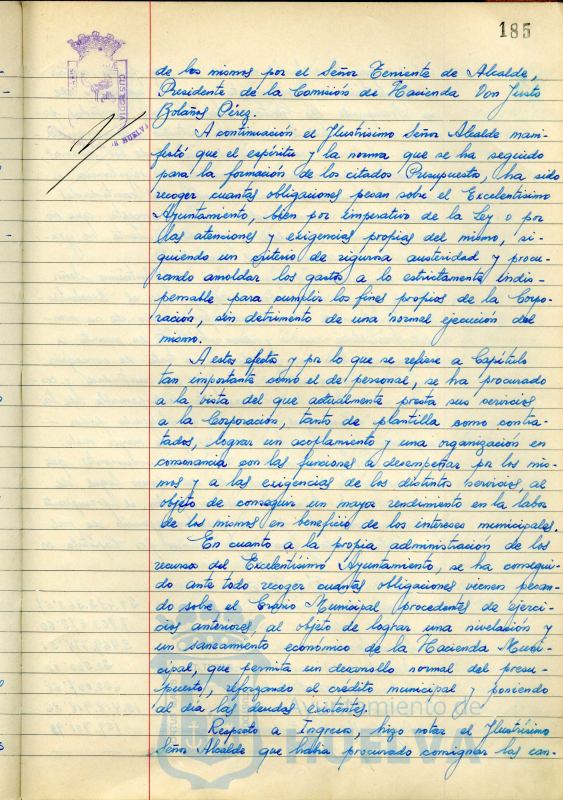 185
de los mismos por el Señor Teniente de Alcalde,
Presidente de la Comisión de Hacienda Don Justo
Bolaños Pérez.
A continuación el Ilustrísimo Señor Alcalde mani-
festó que el espíritu y la norma que se ha seguido
para la formación de los citados Presupuesto, ha sido
recoger cuantas obligaciones pesan sobre el Excelentísimo
Ayuntamiento, bien por imperativo de la Ley o por
las atenciones y exigencias propias del mismo, si-
guiendo un criterio de rigurosa austeridad y procu-
rando amoldar los gastos a lo estrictamente indis-
pensable para cumplir los fines propios de la Corpo-
ración, sin detrimento de una normal ejecución del
mismo.
A estos efectos y por lo que se refiere a Capítulo
tan importante como el de personal, se ha procurado
a la vista del que actualmente presta sus servicios
a la Corporación, tanto de plantilla como contra-
tados, lograr un acoplamiento y una organización en
consonancia con las funciones a desempeñar por los mis-
mos y a las exigencias de los distintos servicios, al
objeto de conseguir un mayor rendimiento en la labor
de los mismos en beneficio de los intereses municipales.
En cuanto a la propia administración de los
recursos del Excelentísimo Ayuntamiento, se ha consegui-
do ante todo recoger cuantas obligaciones vienen pesan-
do sobre el Erario Municipal procedentes de ejerci-
cios anteriores al objeto de lograr una nivelación y
un saneamiento económico de la Hacienda Muni-
cipal, que permita un desarrollo normal del presu-
puesto, reforzando el crédito municipal y poniendo
al día las deudas existentes.
Respecto a Ingresos, hizo notar el Ilustrísimo
Señor Alcalde que había procurado consignar las can-
Ayuntamiento de
HUELVA